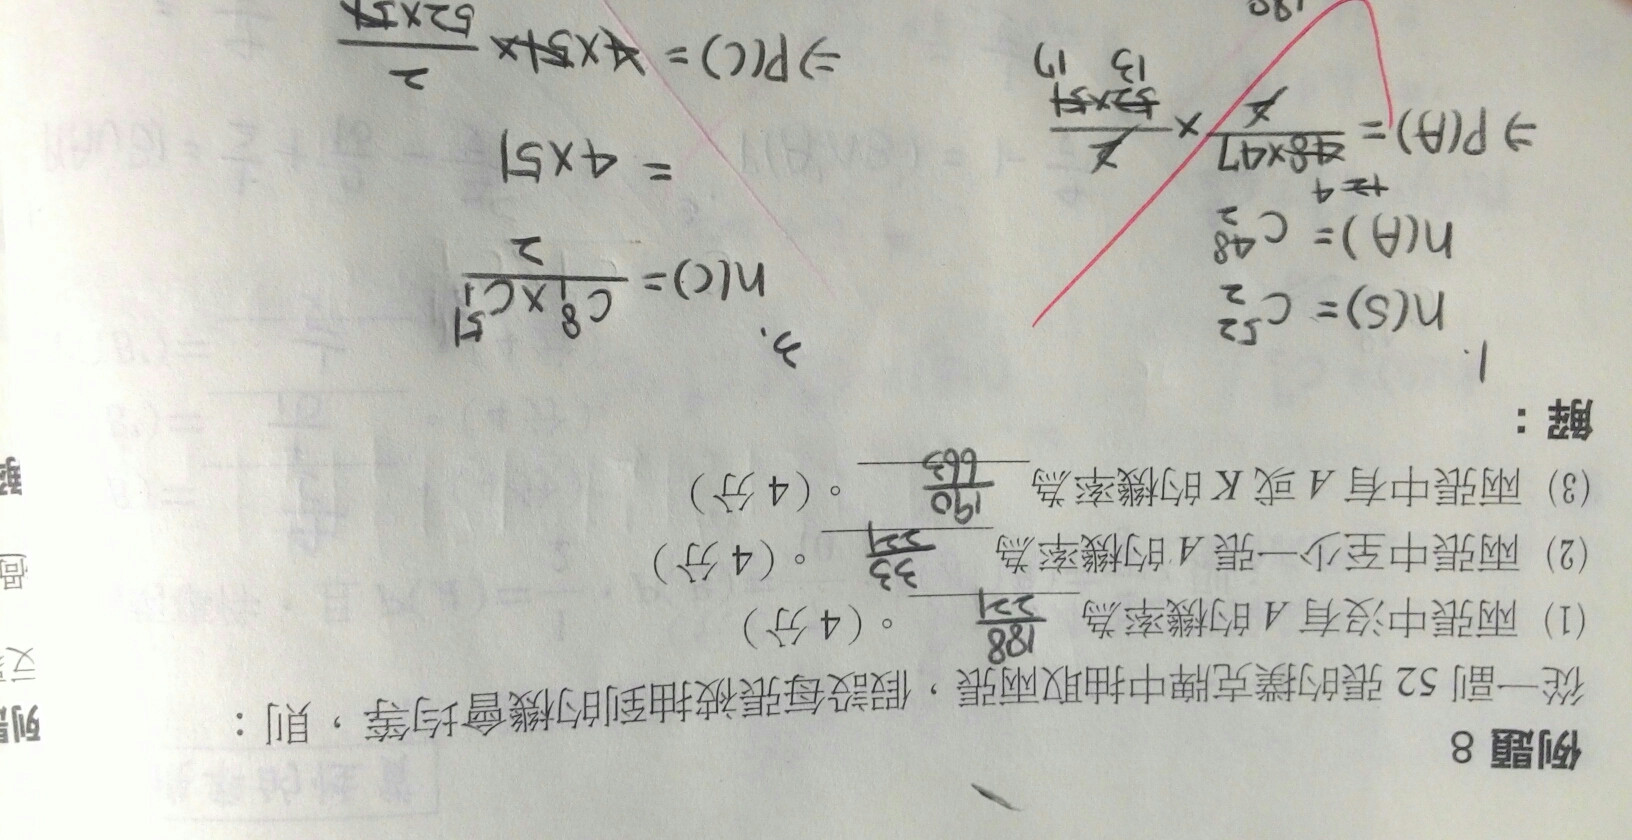 例題 8
從一副 52 張的撲克牌中抽取兩張，假設每張被抽到的機會均等，則：
(1) 兩張中沒有 A 的機率為 188/221 。(4 分)
(2) 兩張中至少一張 A 的機率為 33/221 。(4 分)
(3) 兩張中有 A 或 K 的機率為 190/663 。(4 分)
解：
1.
n(S) = C 52 2
n(A) = C 48 2
⇒ P(A) = 48×47/2 × 2/52×51
13 17
3.
n(C) = C 8 1 × C 51 1 / 2
= 4×51
⇒ P(C) = 4×51× 2/52×51
例題